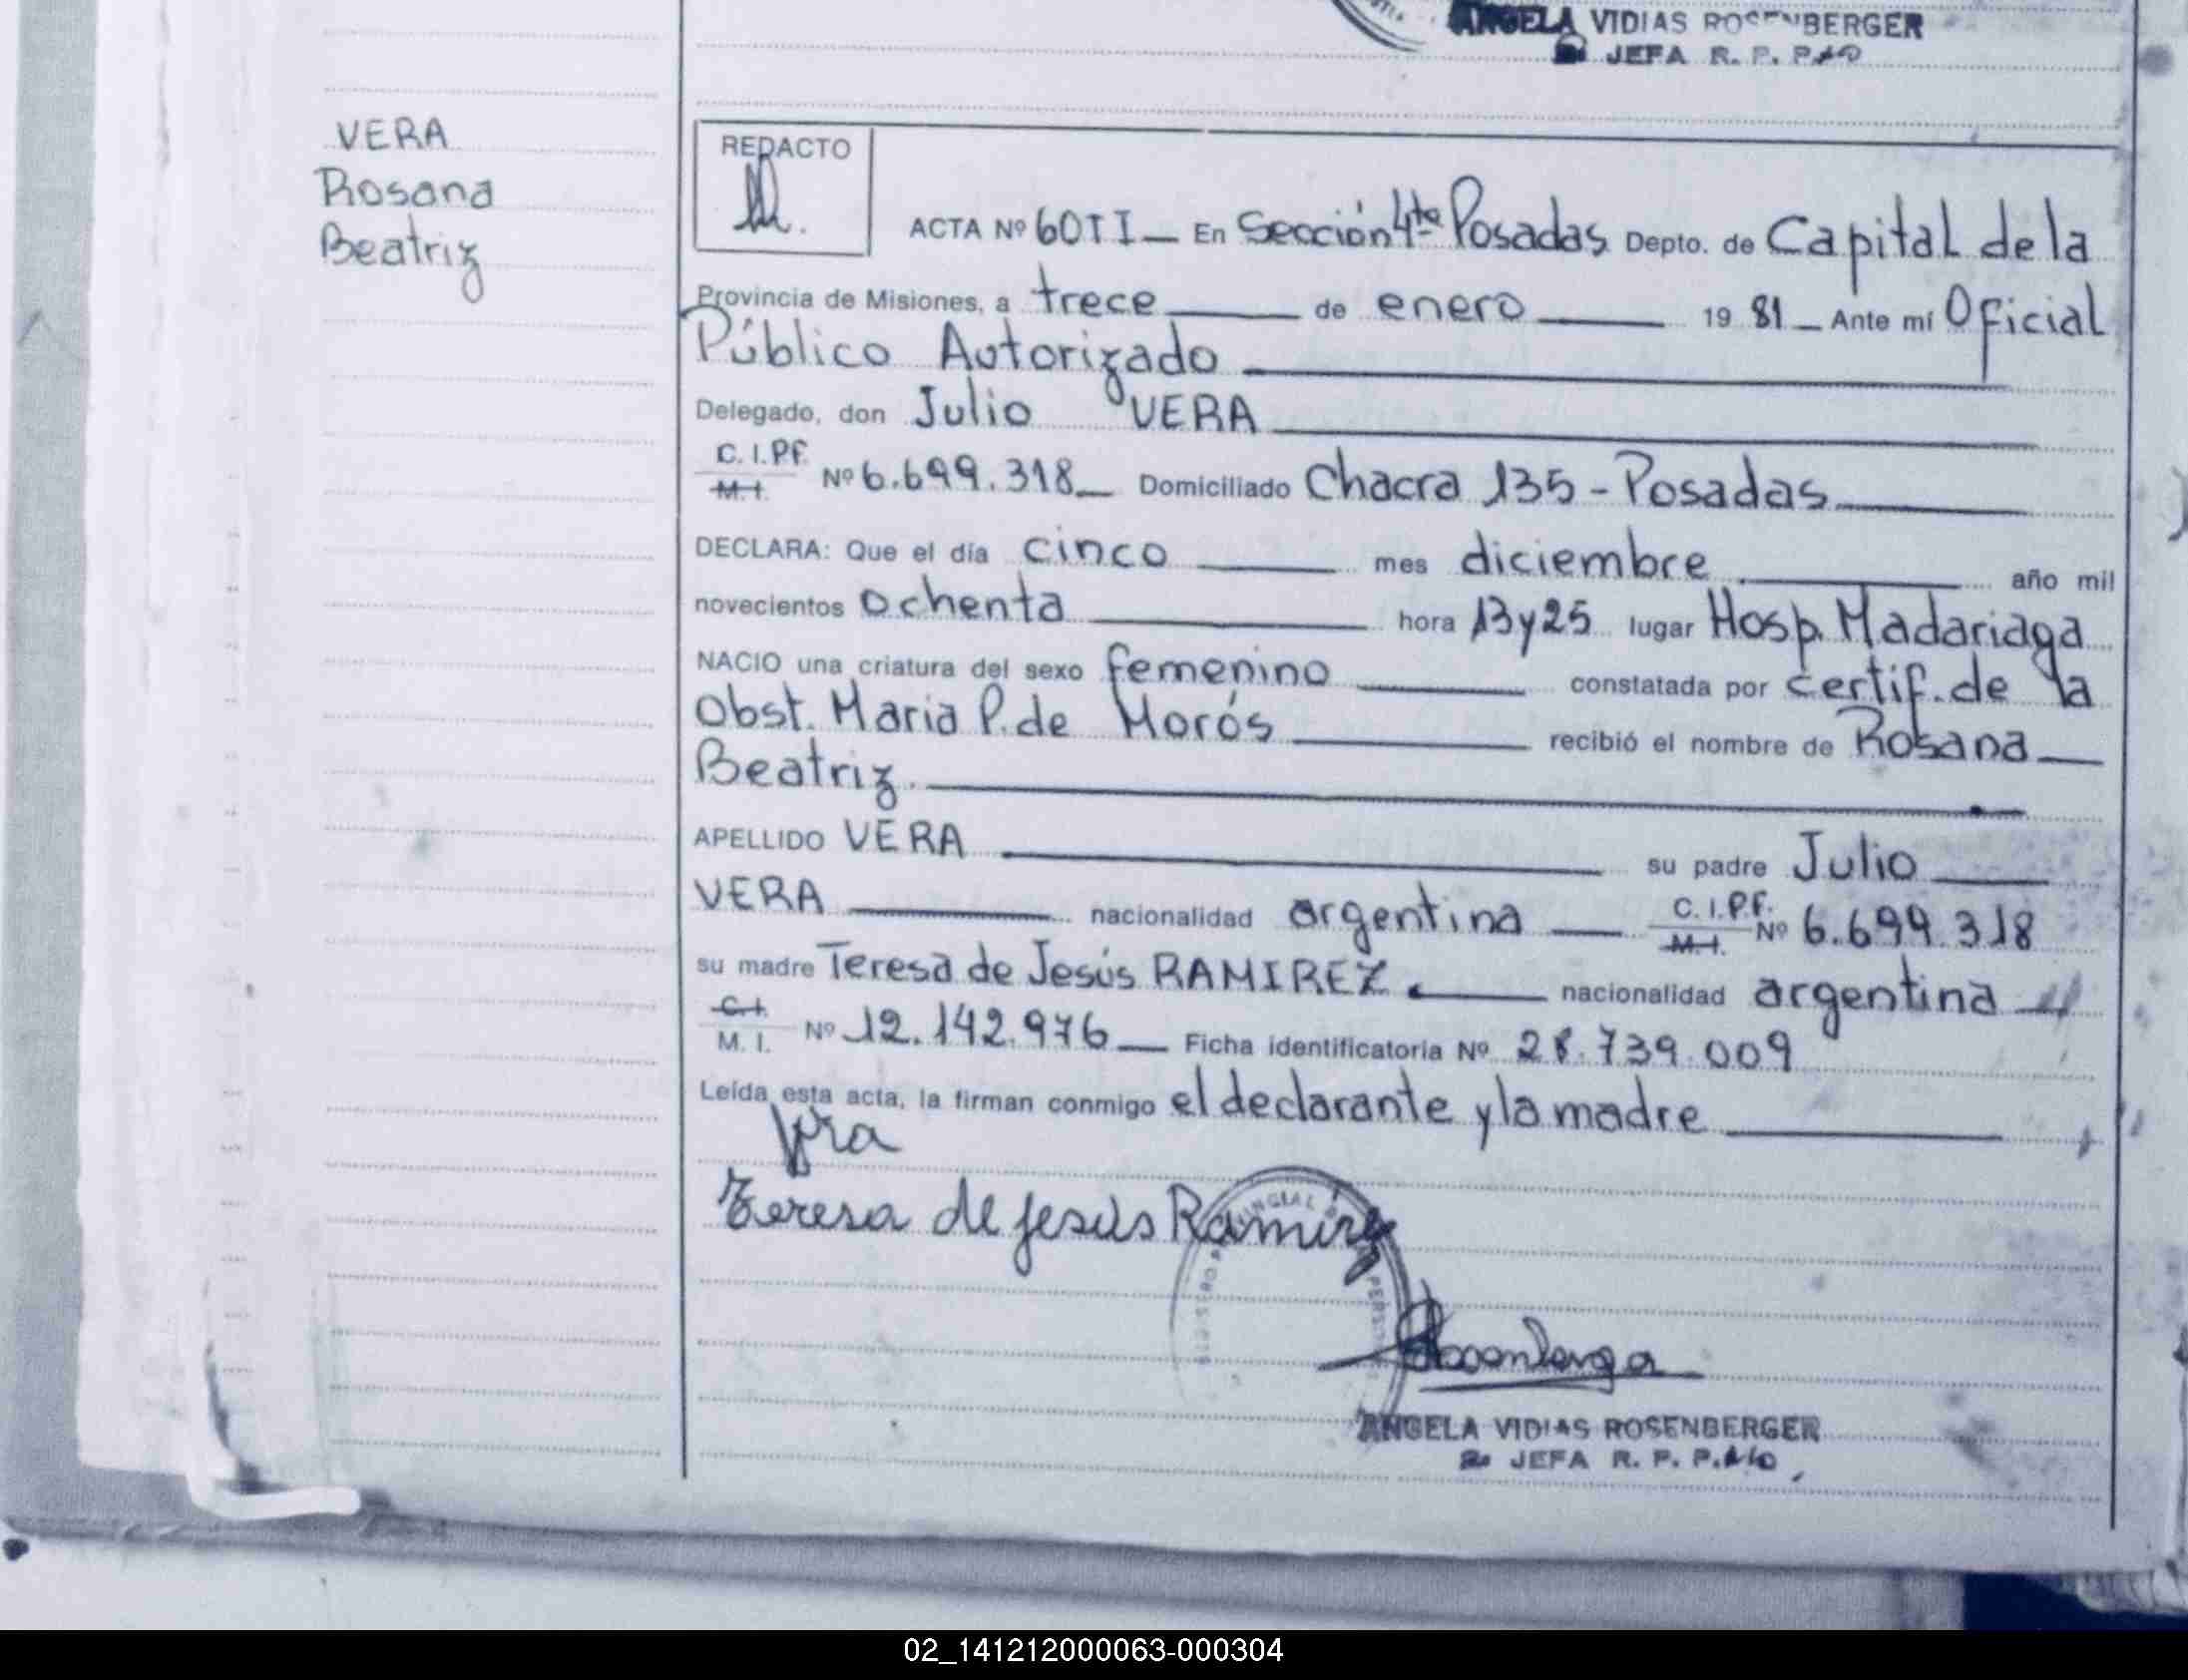 ANGELA VIDIAS ROSENBERGER
JEFA R. P. P.
VERA
Rosana
Beatriz
REDACTO
ACTA Nº 60 T I — En Sección 4ta Posadas Depto. de Capital de la
Provincia de Misiones, a trece de enero 19 81 Ante mí Oficial
Público Autorizado
Delegado, don Julio VERA
C.I.P.F.
M.I. Nº 6.699.318 Domiciliado Chacra 135 - Posadas
DECLARA: Que el día cinco mes diciembre año mil
novecientos ochenta hora 13 y 25 lugar Hosp. Madariaga
NACIO una criatura del sexo femenino constatada por certif. de la
Obst. Maria P. de Morós recibió el nombre de Rosana
Beatriz.
APELLIDO VERA su padre Julio
VERA nacionalidad argentina C.I.P.F. M.I. Nº 6.699.318
su madre Teresa de Jesús RAMIREZ nacionalidad argentina
C.I.
M. I. Nº 12.142.976 Ficha identificatoria Nº 28.739.009
Leída esta acta, la firman conmigo el declarante y la madre
Vera
Teresa de Jesús Ramirez
Rosenberger
ANGELA VIDIAS ROSENBERGER
JEFA R. P. P.
02_141212000063-000304